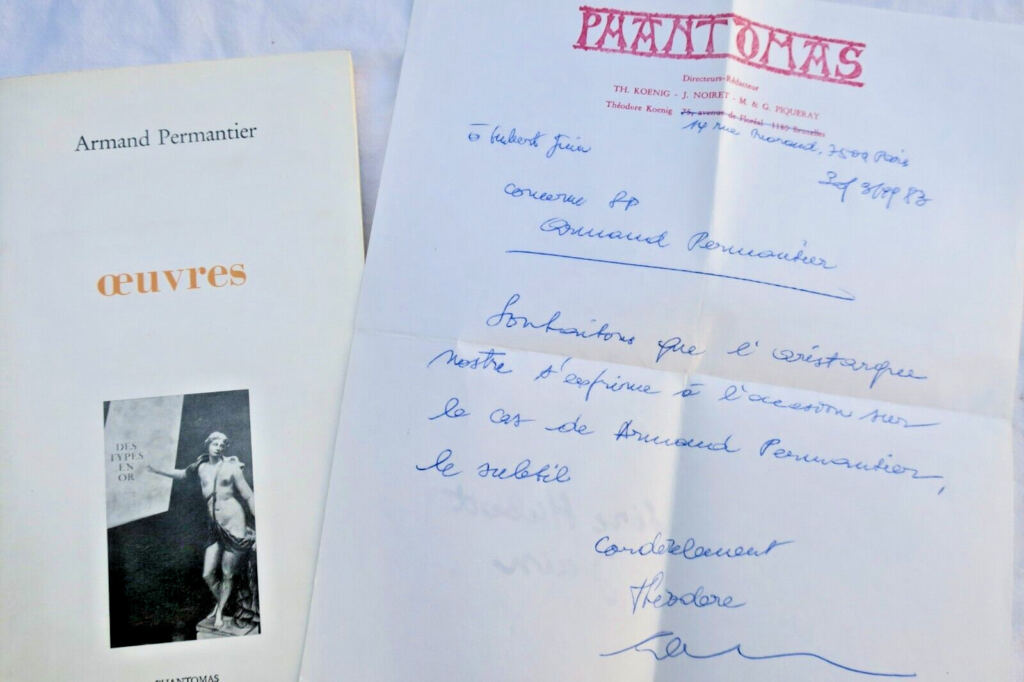 Armand Permantier
œuvres
DES
TYPES
EN
OR
PHANTOMAS
PHANTOMAS
Directeurs-Rédacteur
TH. KOENIG - J. NOIRET - M. & G. PIQUERAY
Théodore Koenig 75, avenue de Floréal 1180 Bruxelles
14 rue 
à Hubert Juin
83
concerne SP
Armand Permantier
Souhaitons que l'aristarque
nostre s'exprime à l'occasion sur
le cas de Armand Permantier,
le subtil
Cordialement
Théodore